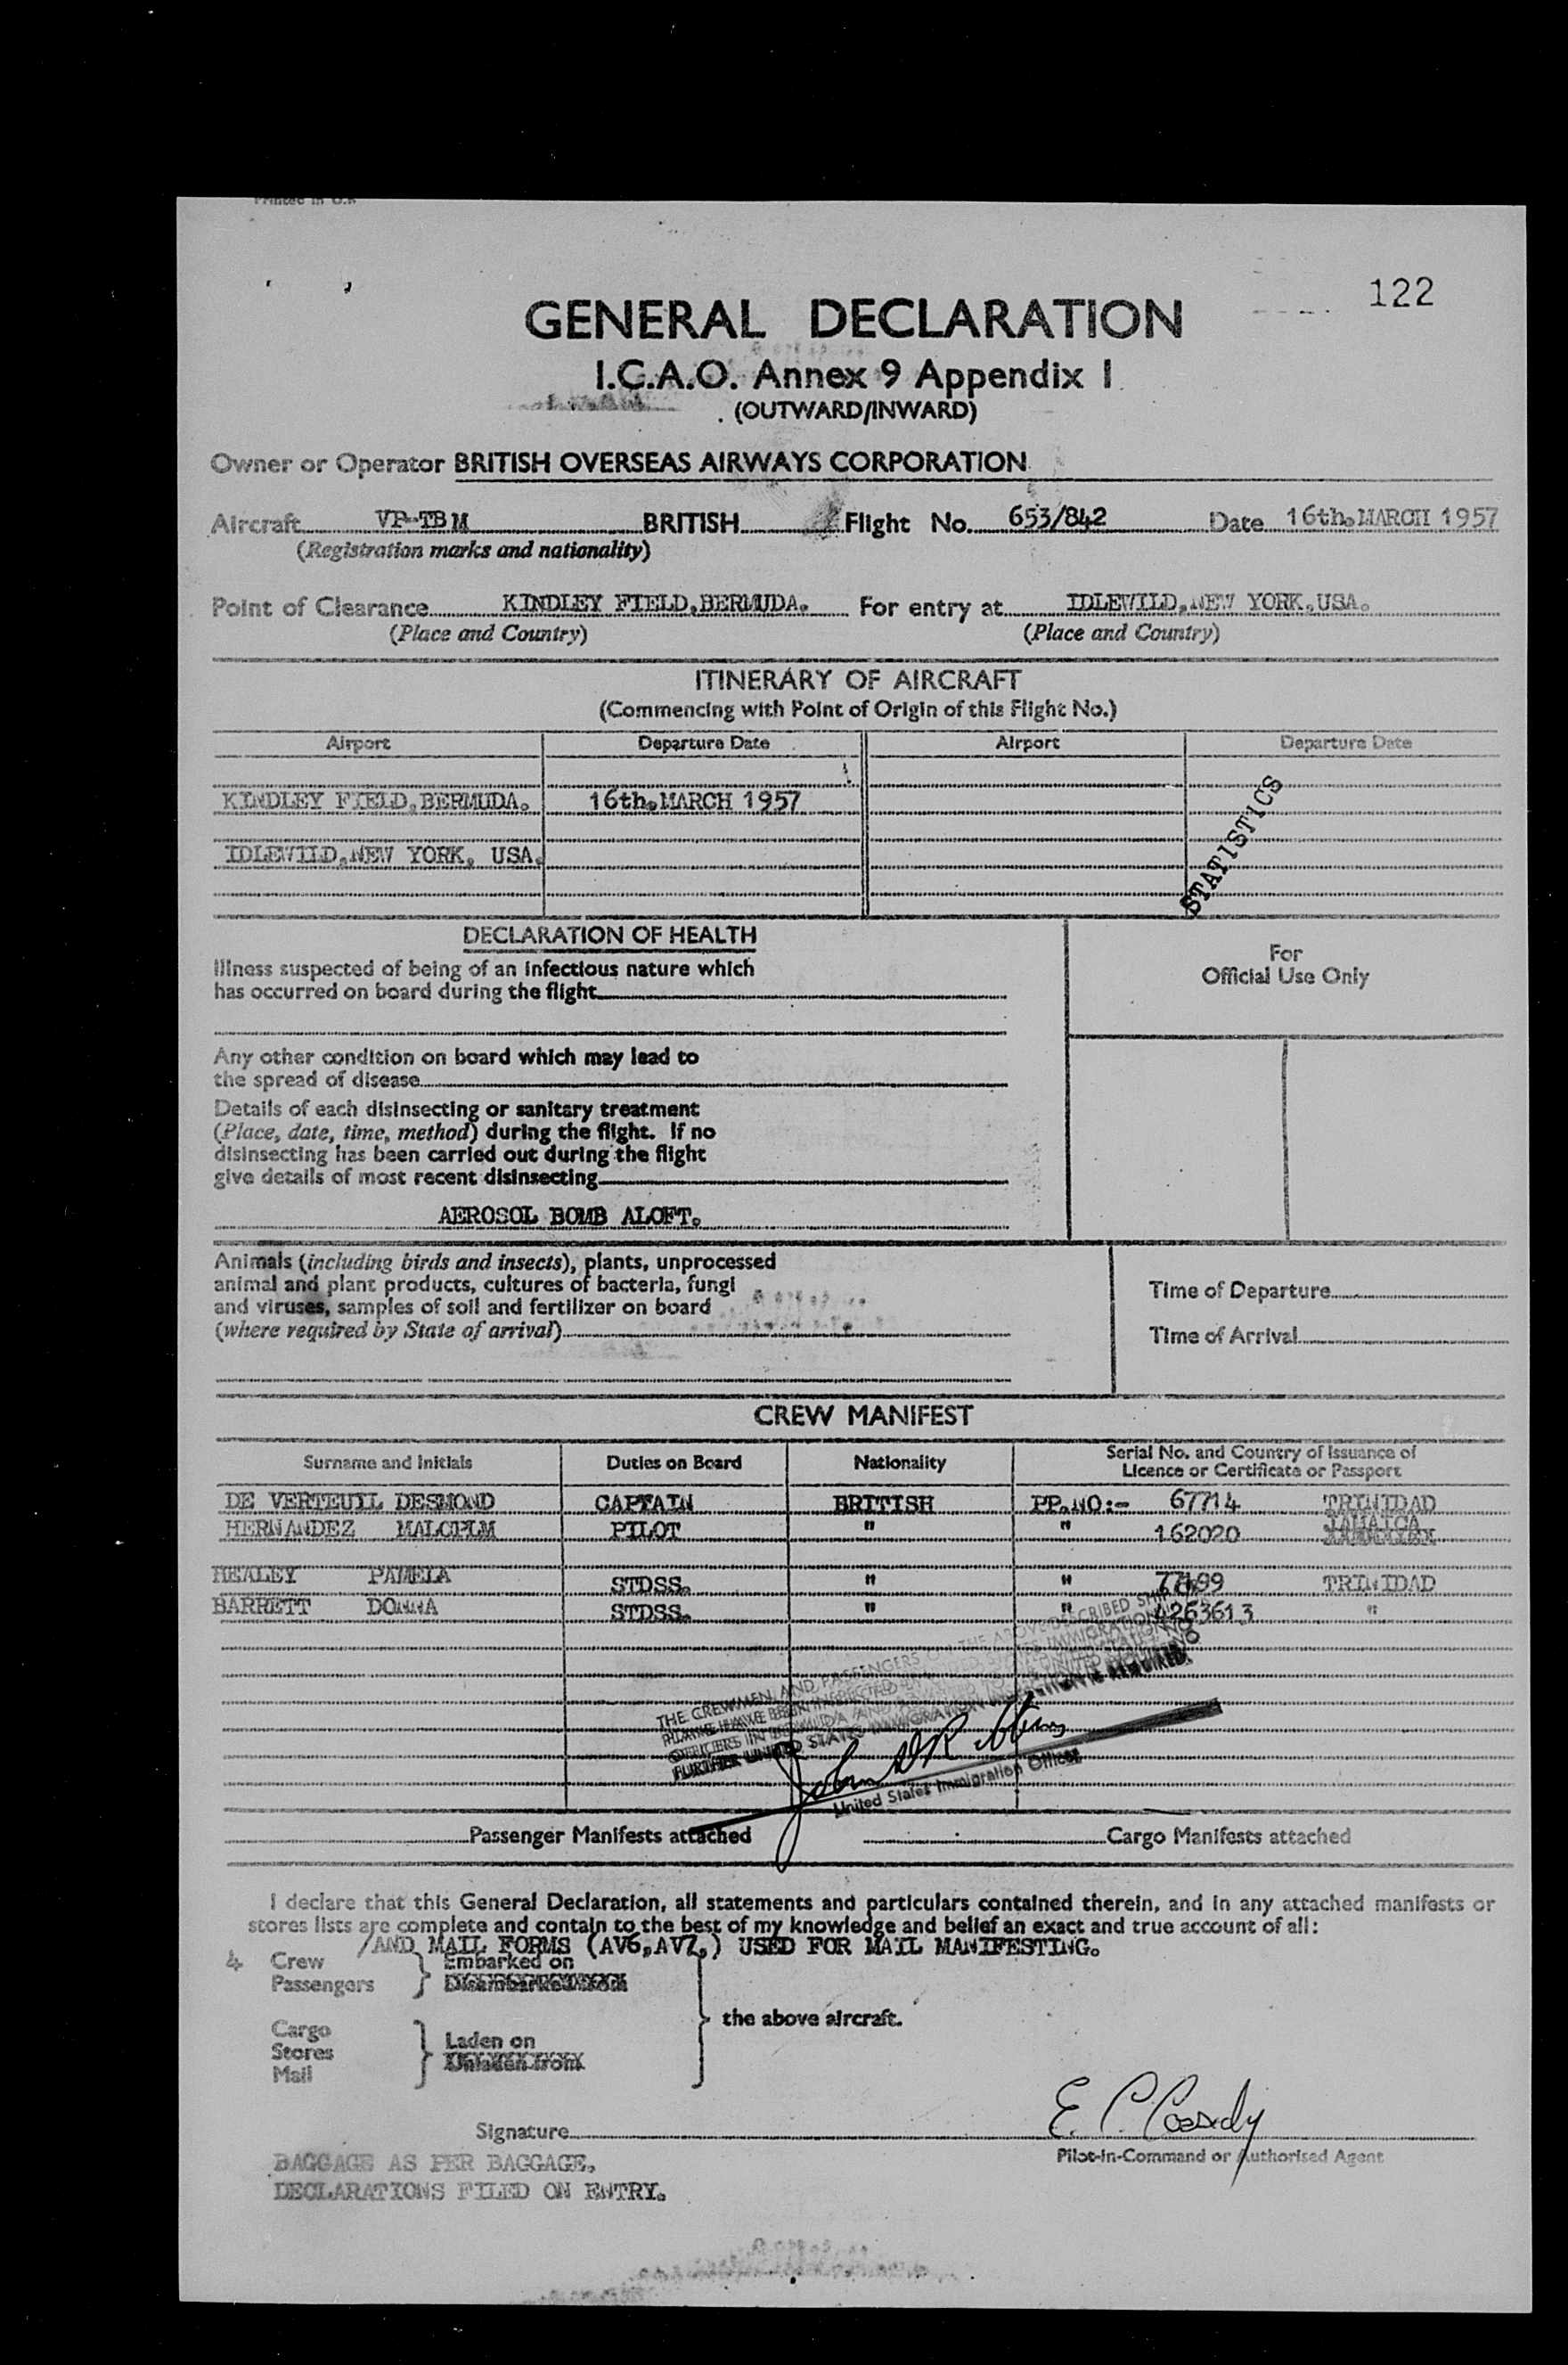 Printed in U.K
122
GENERAL DECLARATION
I.C.A.O. Annex 9 Appendix 1
(OUTWARD/INWARD)
Owner or Operator BRITISH OVERSEAS AIRWAYS CORPORATION
Aircraft VP-TBM BRITISH Flight No. 653/842 Date 16th.MARCH 1957
(Registration marks and nationality)
Point of Clearance KINDLEY FIELD,BERMUDA. For entry at IDLEWILD,NEW YORK,USA.
(Place and Country) (Place and Country)
ITINERARY OF AIRCRAFT
(Commencing with Point of Origin of this Flight No.)
Airport Departure Date Airport Departure Date
KINDLEY FIELD,BERMUDA. 16th.MARCH 1957
IDLEWILD,NEW YORK, USA.
STATISTICS
DECLARATION OF HEALTH
Illness suspected of being of an infectious nature which
has occurred on board during the flight
For
Official Use Only
Any other condition on board which may lead to
the spread of disease
Details of each disinsecting or sanitary treatment
(Place, date, time, method) during the flight. If no
disinsecting has been carried out during the flight
give details of most recent disinsecting
AEROSOL BOMB ALOFT.
Animals (including birds and insects), plants, unprocessed
animal and plant products, cultures of bacteria, fungi
and viruses, samples of soil and fertilizer on board
(where required by State of arrival)
Time of Departure
Time of Arrival
CREW MANIFEST
Surname and Initials Duties on Board Nationality Serial No. and Country of Issuance of
Licence or Certificate or Passport
DE VERTEUIL DESMOND CAPTAIN BRITISH PP.NO:- 67714 TRINIDAD
HERNANDEZ MALCOLM PILOT " " 162020 JAMAICA
HEALEY PAMELA STDSS. " " TRINIDAD
BARRETT DONNA STDSS. " " 4263613 "
THE CREWMEN AND PASSENGERS ON THE ABOVE DESCRIBED
FURTHER UNITED STATES IMMIGRATION INSPECTION IS REQUIRED.
United States Immigration Officer
Passenger Manifests attached Cargo Manifests attached
I declare that this General Declaration, all statements and particulars contained therein, and in any attached manifests or
stores lists are complete and contain to the best of my knowledge and belief an exact and true account of all:
/AND MAIL FORMS (AV6,AV7,) USED FOR MAIL MANIFESTING.
4 Crew Embarked on
Passengers Disembarked from
the above aircraft.
Cargo
Stores Laden on
Mail Unladen from
E. P. Cassidy
Signature
Pilot-in-Command or Authorised Agent
BAGGAGE AS PER BAGGAGE.
DECLARATIONS FILED ON ENTRY.